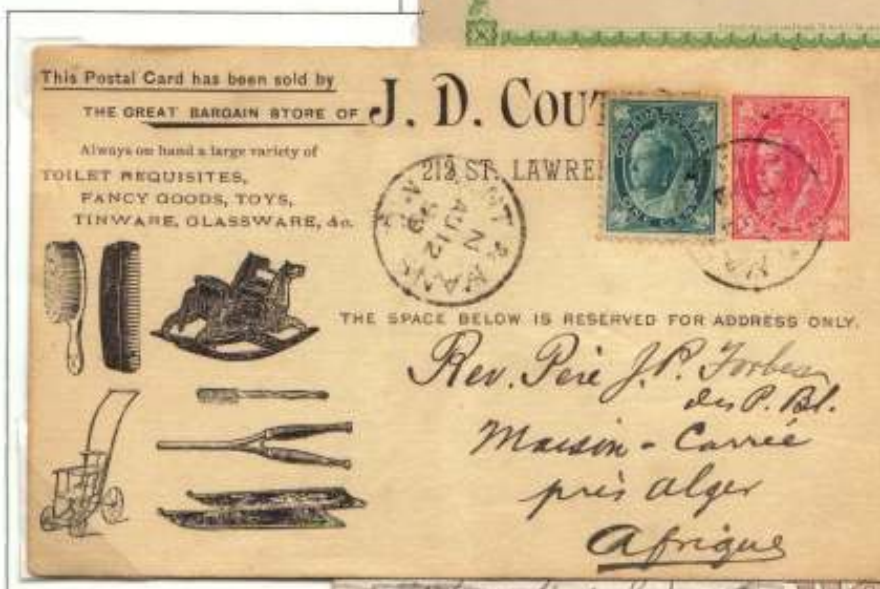 This Postal Card has been sold by
THE GREAT BARGAIN STORE OF J. D. COUT
Always on hand a large variety of
TOILET REQUISITES,
FANCY GOODS, TOYS,
TINWARE, GLASSWARE, &c.
212 ST. LAWREN
AU 12
99
MAN
THE SPACE BELOW IS RESERVED FOR ADDRESS ONLY.
Rev. Père J. P. Forbes
des P. Bl.
Maison-Carrée
près Alger
Afrique